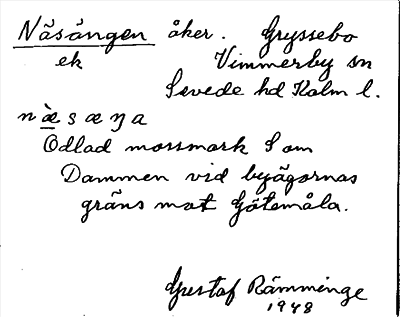 Näsängen åker. Gryssebo
ek Vimmerby sn
Sevede hd Kalm l.
næ̀sæŋa
Odlad mossmark S om
Dammen vid byägornas
gräns mot Götemåla.
Gustaf Rämminge
1948